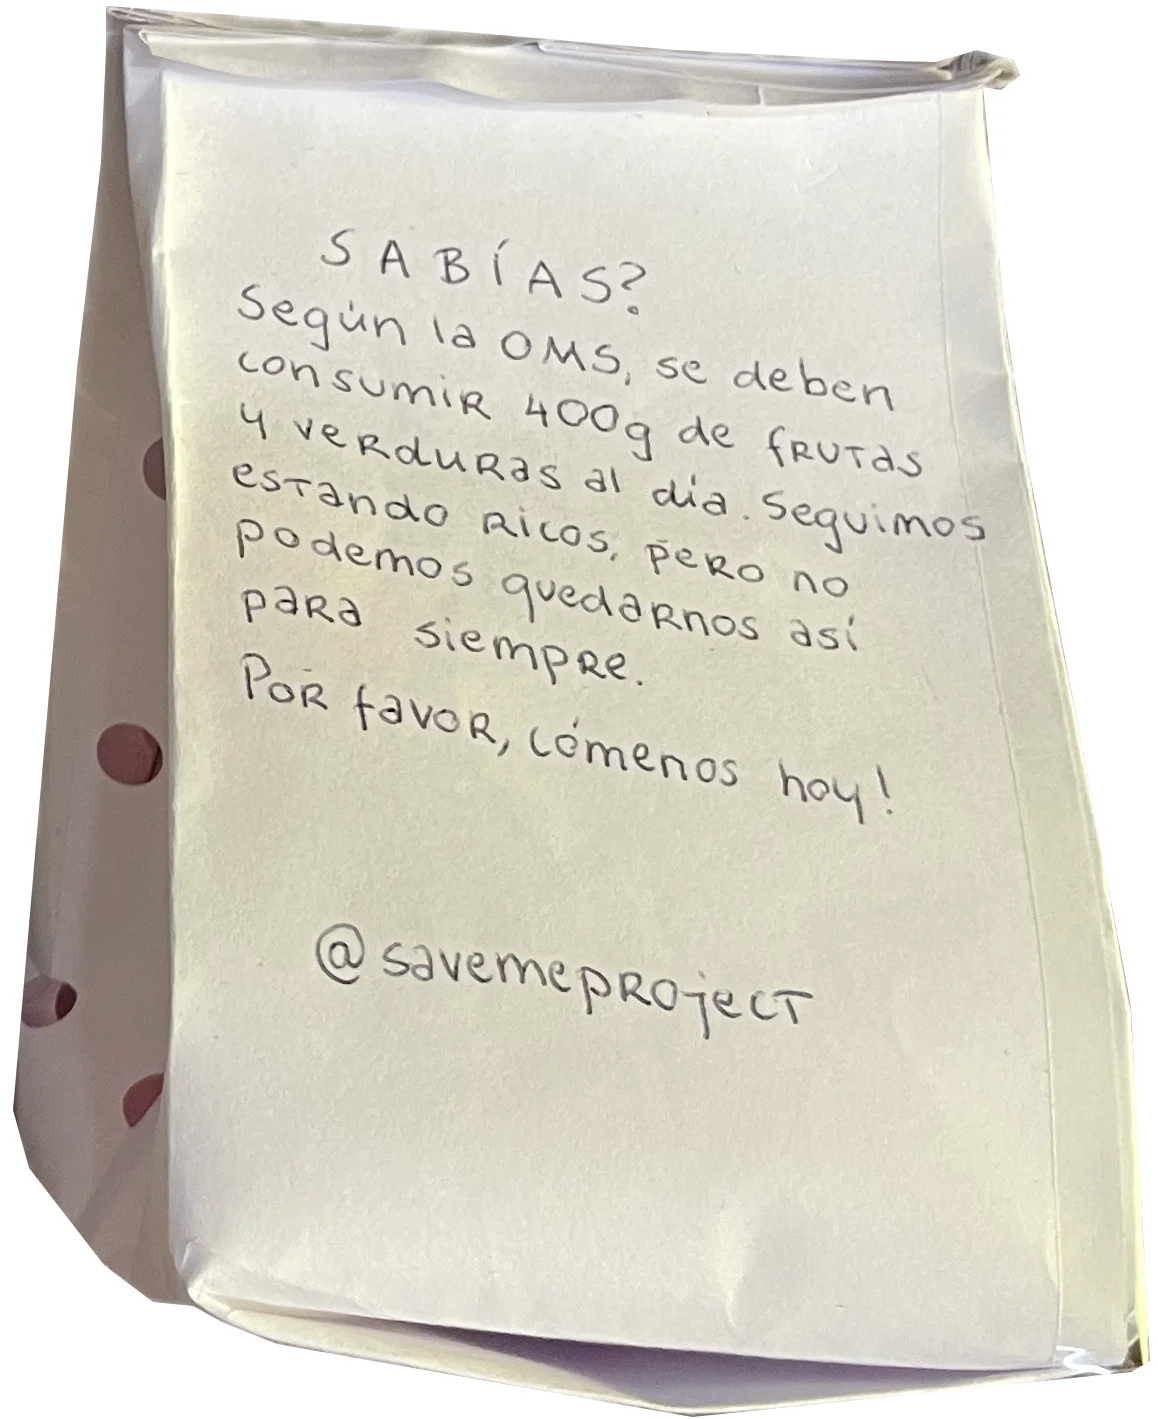 SABÍAS?
Según la OMS, se deben
consumir 400g de frutas
y verduras al día. Seguimos
estando ricos, pero no
podemos quedarnos así
para siempre.
Por favor, cómenos hoy!
@savemeproject